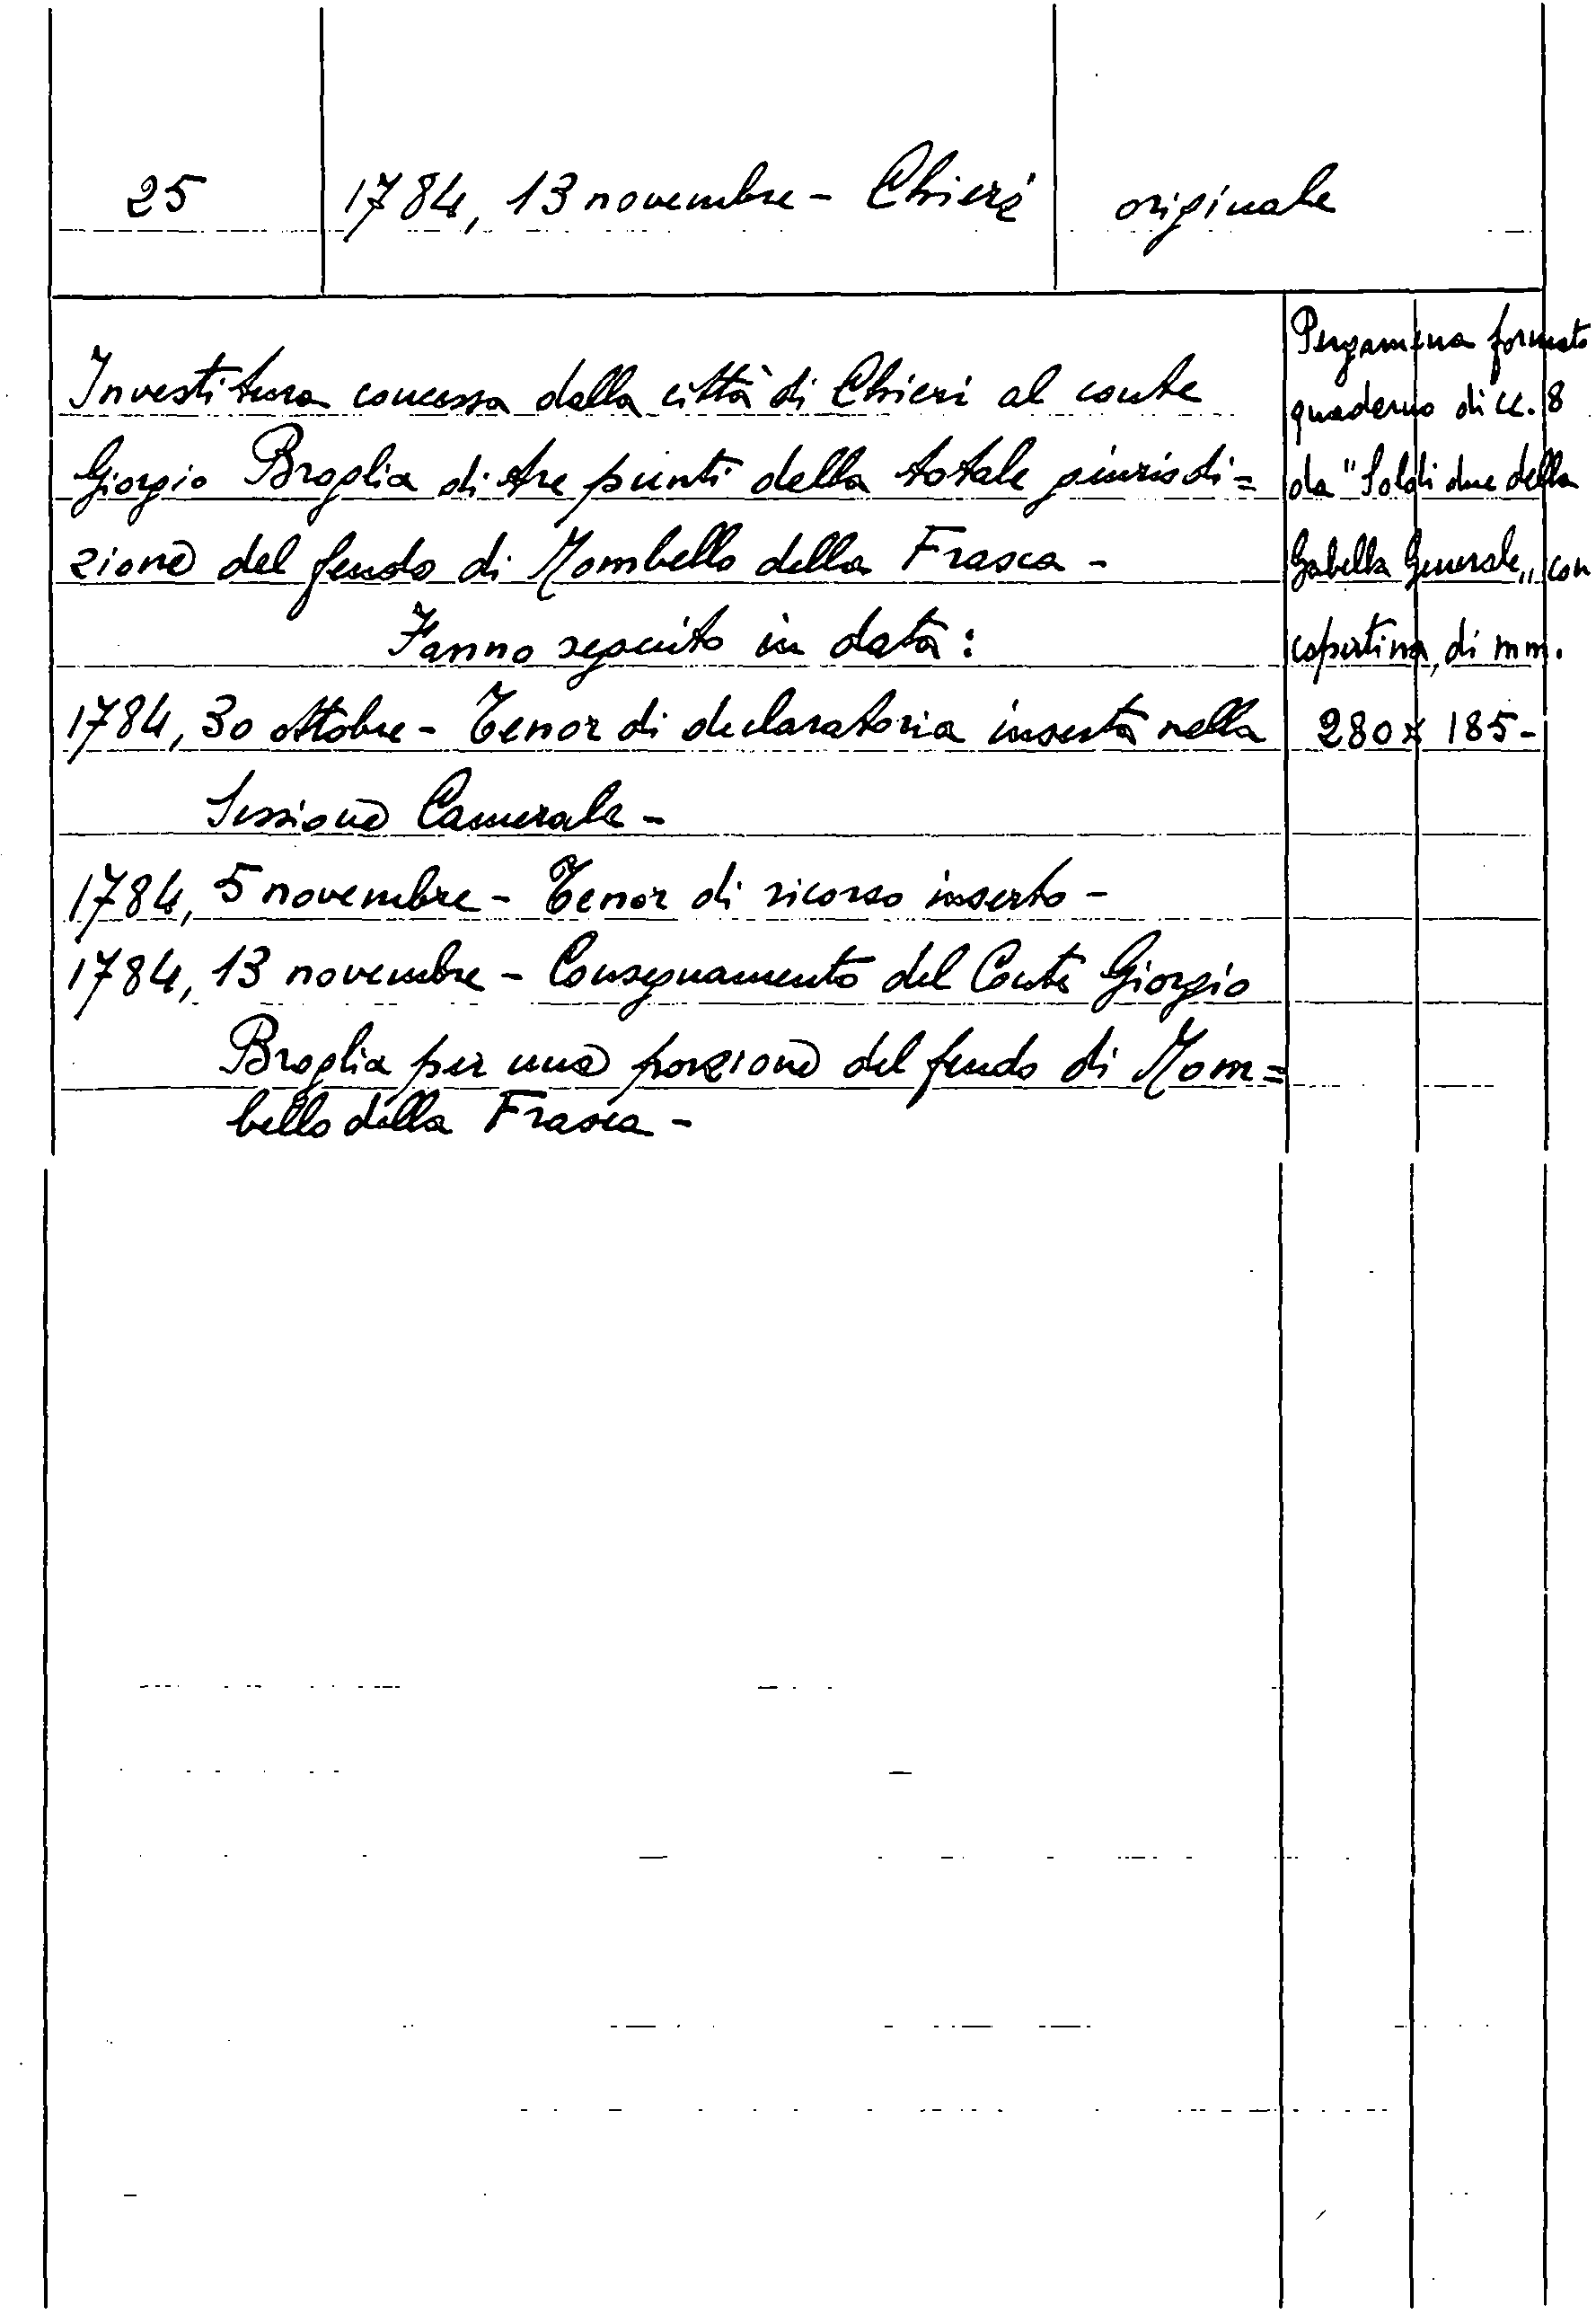 25
1784, 13 novembre - Chieri
originale
Investitura concessa dalla città di Chieri al conte
Giorgio Broglia di tre punti della totale giurisdi=
zione del feudo di Mombello della Frasca -
Fanno seguito in data:
1784, 30 ottobre - Tenor di declaratoria inserta nella
Sessione Camerale -
1784, 5 novembre - Tenor di ricorso inserto -
1784, 13 novembre - Consegnamento del Conte Giorgio
Broglia per una porzione del feudo di Mom=
bello della Frasca -
Pergamena formato
quaderno di cc. 8
da "Soldi due della
Gabella Generale„ con
copertina, di mm.
280 x 185 -